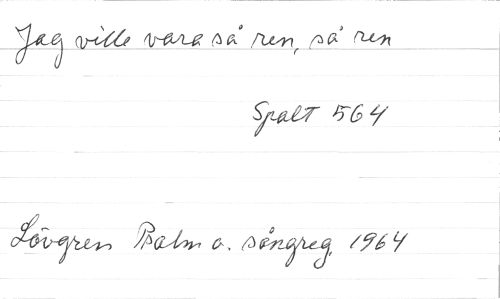 Jag ville vara så ren, så ren
Spalt 564
Lövgren Psalm o. sångreg. 1964